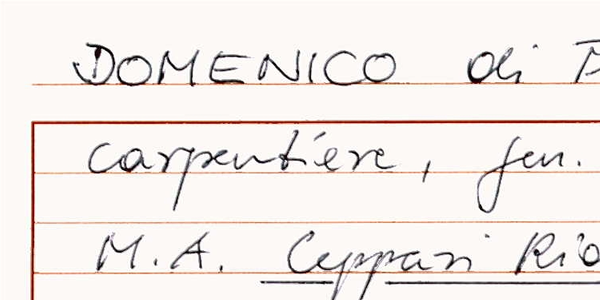 DOMENICO di
carpentiere, fen.
M.A. Ceppari